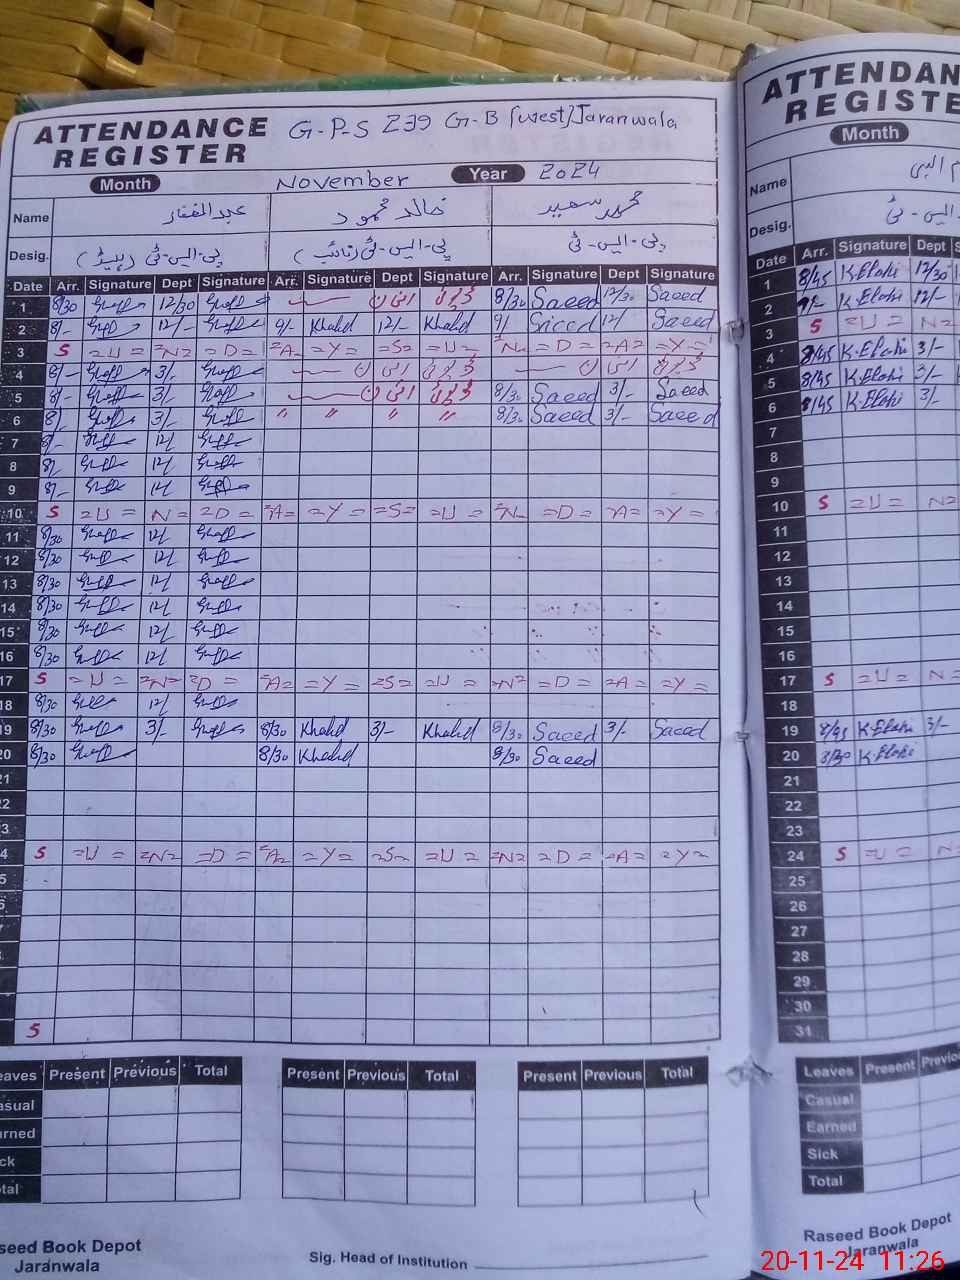 ATTENDANCE REGISTER G-P-S 239 G-B (west) Jaranwala
Month November Year 2024
Name عبدالغفار خالد محمود محمد سعید
Desig. پی-ایس-ٹی (ہیڈ) پی-ایس-ٹی (نائب) پی-ایس-ٹی
Date Arr. Signature Dept Signature Arr. Signature Dept Signature Arr. Signature Dept Signature
1 8/30 12/30 8/30 Saeed 12/30 Saeed
2 8/- 12/- 9/- Khalid 12/- Khalid 9/ Saeed 12/ Saeed
3 S =U= =N= =D= =A= =Y= =S= =U= =N= =D= =A= =Y=
4 8/- 3/-
5 8/- 3/- 8/30 Saeed 3/- Saeed
6 8/ 3/- " " " " 8/30 Saeed 3/- Saeed
7 8/- 12/
8 8/- 12/
9 8/- 12/
10 S =U= N= =D= =A= =Y= =S= =U= =N= =D= =A= =Y=
11 8/30 12/
12 8/30 12/
13 8/30 12/
14 8/30 12/
15 8/30 12/
16 8/30 12/
17 S =U= =N= =D= =A= =Y= =S= =U= =N= =D= =A= =Y=
18 8/30 12/
19 8/30 3/- 8/30 Khalid 3/- Khalid 8/30 Saeed 3/- Saeed
20 8/30 8/30 Khalid 8/30 Saeed
21
2
3
4 S =U= =N= =D= =A= =Y= =S= =U= =N= =D= =A= =Y=
5
S
eaves Present Previous Total Present Previous Total Present Previous Total
asual
arned
ck
otal
seed Book Depot
Jaranwala
Sig. Head of Institution
ATTENDAN
REGISTE
Month
Name
Desig.
Date Arr. Signature Dept S
1 8/45 K.Elahi 12/30
2 9/- K.Elahi 12/-
3 S =U= N=
4 8/45 K.Elahi 3/-
5 8/45 K.Elahi 3/-
6 8/45 K.Elahi 3/-
7
8
9
10 S =U= N=
11
12
13
14
15
16
17 S =U= N=
18
19 8/45 K.Elahi 3/-
20 8/30 K.Elahi
21
22
23
24 S =U= N=
25
26
27
28
29
30
31
Leaves Present Previo
Casual
Earned
Sick
Total
Raseed Book Depot
Jaranwala
20-11-24 11:26